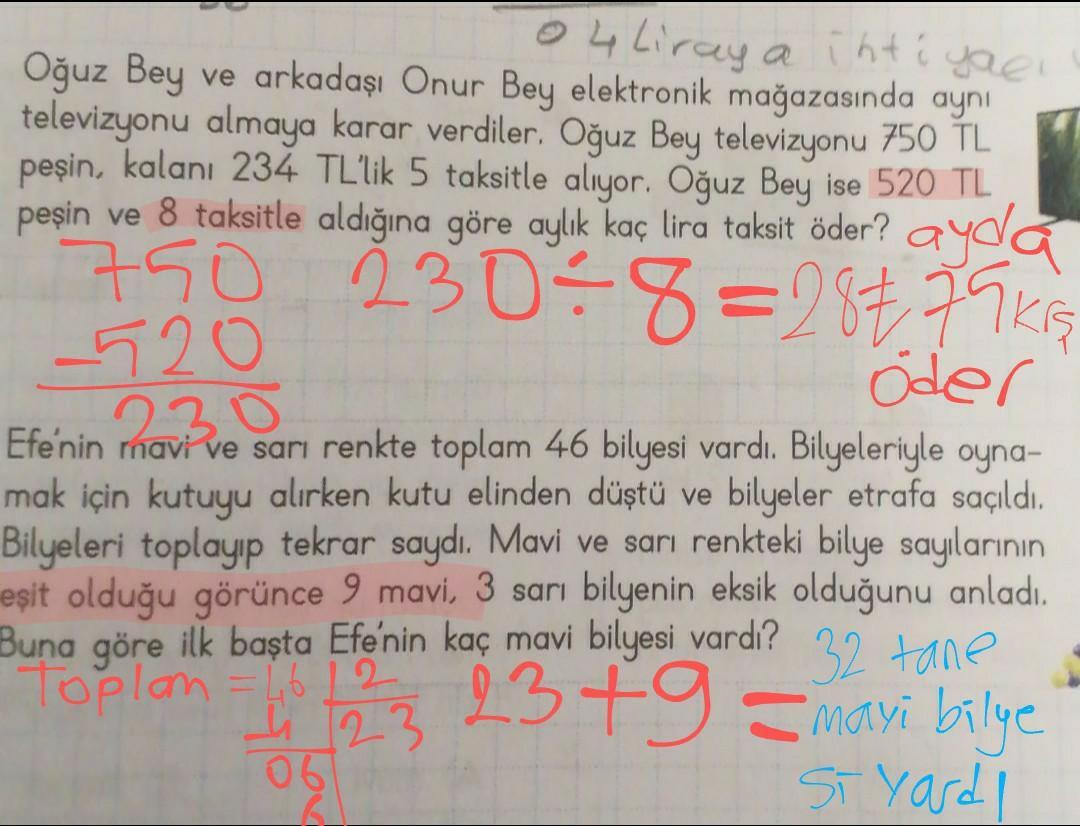 04 Liraya ihtiyacı
Oğuz Bey ve arkadaşı Onur Bey elektronik mağazasında aynı
televizyonu almaya karar verdiler. Oğuz Bey televizyonu 750 TL
peşin, kalanı 234 TL'lik 5 taksitle alıyor. Oğuz Bey ise 520 TL
peşin ve 8 taksitle aldığına göre aylık kaç lira taksit öder?
ayda
750
-520
230
230÷8=28₺ 75 Krş
öder
Efe'nin mavi ve sarı renkte toplam 46 bilyesi vardı. Bilyeleriyle oyna-
mak için kutuyu alırken kutu elinden düştü ve bilyeler etrafa saçıldı.
Bilyeleri toplayıp tekrar saydı. Mavi ve sarı renkteki bilye sayılarının
eşit olduğu görünce 9 mavi, 3 sarı bilyenin eksik olduğunu anladı.
Buna göre ilk başta Efe'nin kaç mavi bilyesi vardı?
Toplam = 46 2
4 23
06
6
23+9=
32 tane
mavi bilye
si vardı